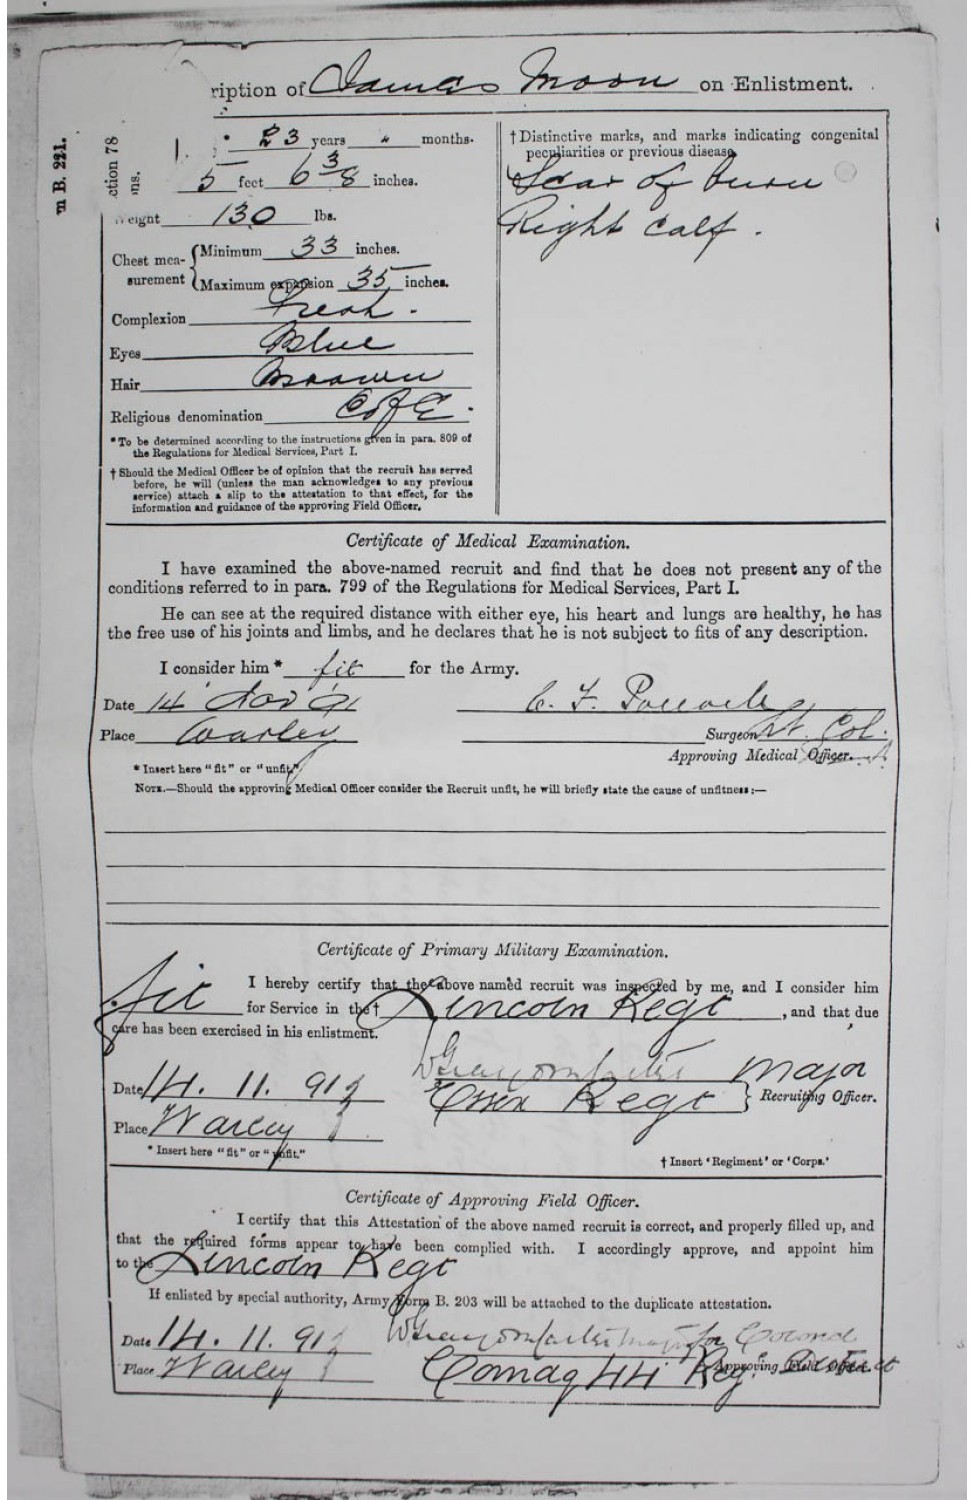 ription of James Moon on Enlistment.
m B. 221.
ction 78
ns.
23 years " months.
5 feet 6 3/8 inches.
Weight 130 lbs.
Chest mea-surement { Minimum 33 inches.
Maximum expansion 35 inches.
Complexion Fresh.
Eyes Blue
Hair Brown
Religious denomination C of E.
* To be determined according to the instructions given in para. 809 of
the Regulations for Medical Services, Part I.
† Should the Medical Officer be of opinion that the recruit has served
before, he will (unless the man acknowledges to any previous
service) attach a slip to the attestation to that effect, for the
information and guidance of the approving Field Officer.
† Distinctive marks, and marks indicating congenital
peculiarities or previous disease.
Scar of burn
Right calf.
Certificate of Medical Examination.
I have examined the above-named recruit and find that he does not present any of the
conditions referred to in para. 799 of the Regulations for Medical Services, Part I.
He can see at the required distance with either eye, his heart and lungs are healthy, he has
the free use of his joints and limbs, and he declares that he is not subject to fits of any description.
I consider him * fit for the Army.
Date 14 Nov
C. F.
Place Warley
Surgeon Lt. Col.
Approving Medical Officer.
* Insert here "fit" or "unfit."
NOTE.—Should the approving Medical Officer consider the Recruit unfit, he will briefly state the cause of unfitness:—
Certificate of Primary Military Examination.
I hereby certify that the above named recruit was inspected by me, and I consider him
fit for Service in the † Lincoln Regt, and that due
care has been exercised in his enlistment.
Major
Date 14. 11. 91
Essex Regt } Recruiting Officer.
Place Warley
* Insert here "fit" or "unfit."
† Insert 'Regiment' or 'Corps.'
Certificate of Approving Field Officer.
I certify that this Attestation of the above named recruit is correct, and properly filled up, and
that the required forms appear to have been complied with. I accordingly approve, and appoint him
to the Lincoln Regt
If enlisted by special authority, Army Form B. 203 will be attached to the duplicate attestation.
Date 14. 11. 91
Major for Colonel
Place Warley
Comdg 44 Reg. District
Approving Field Officer.